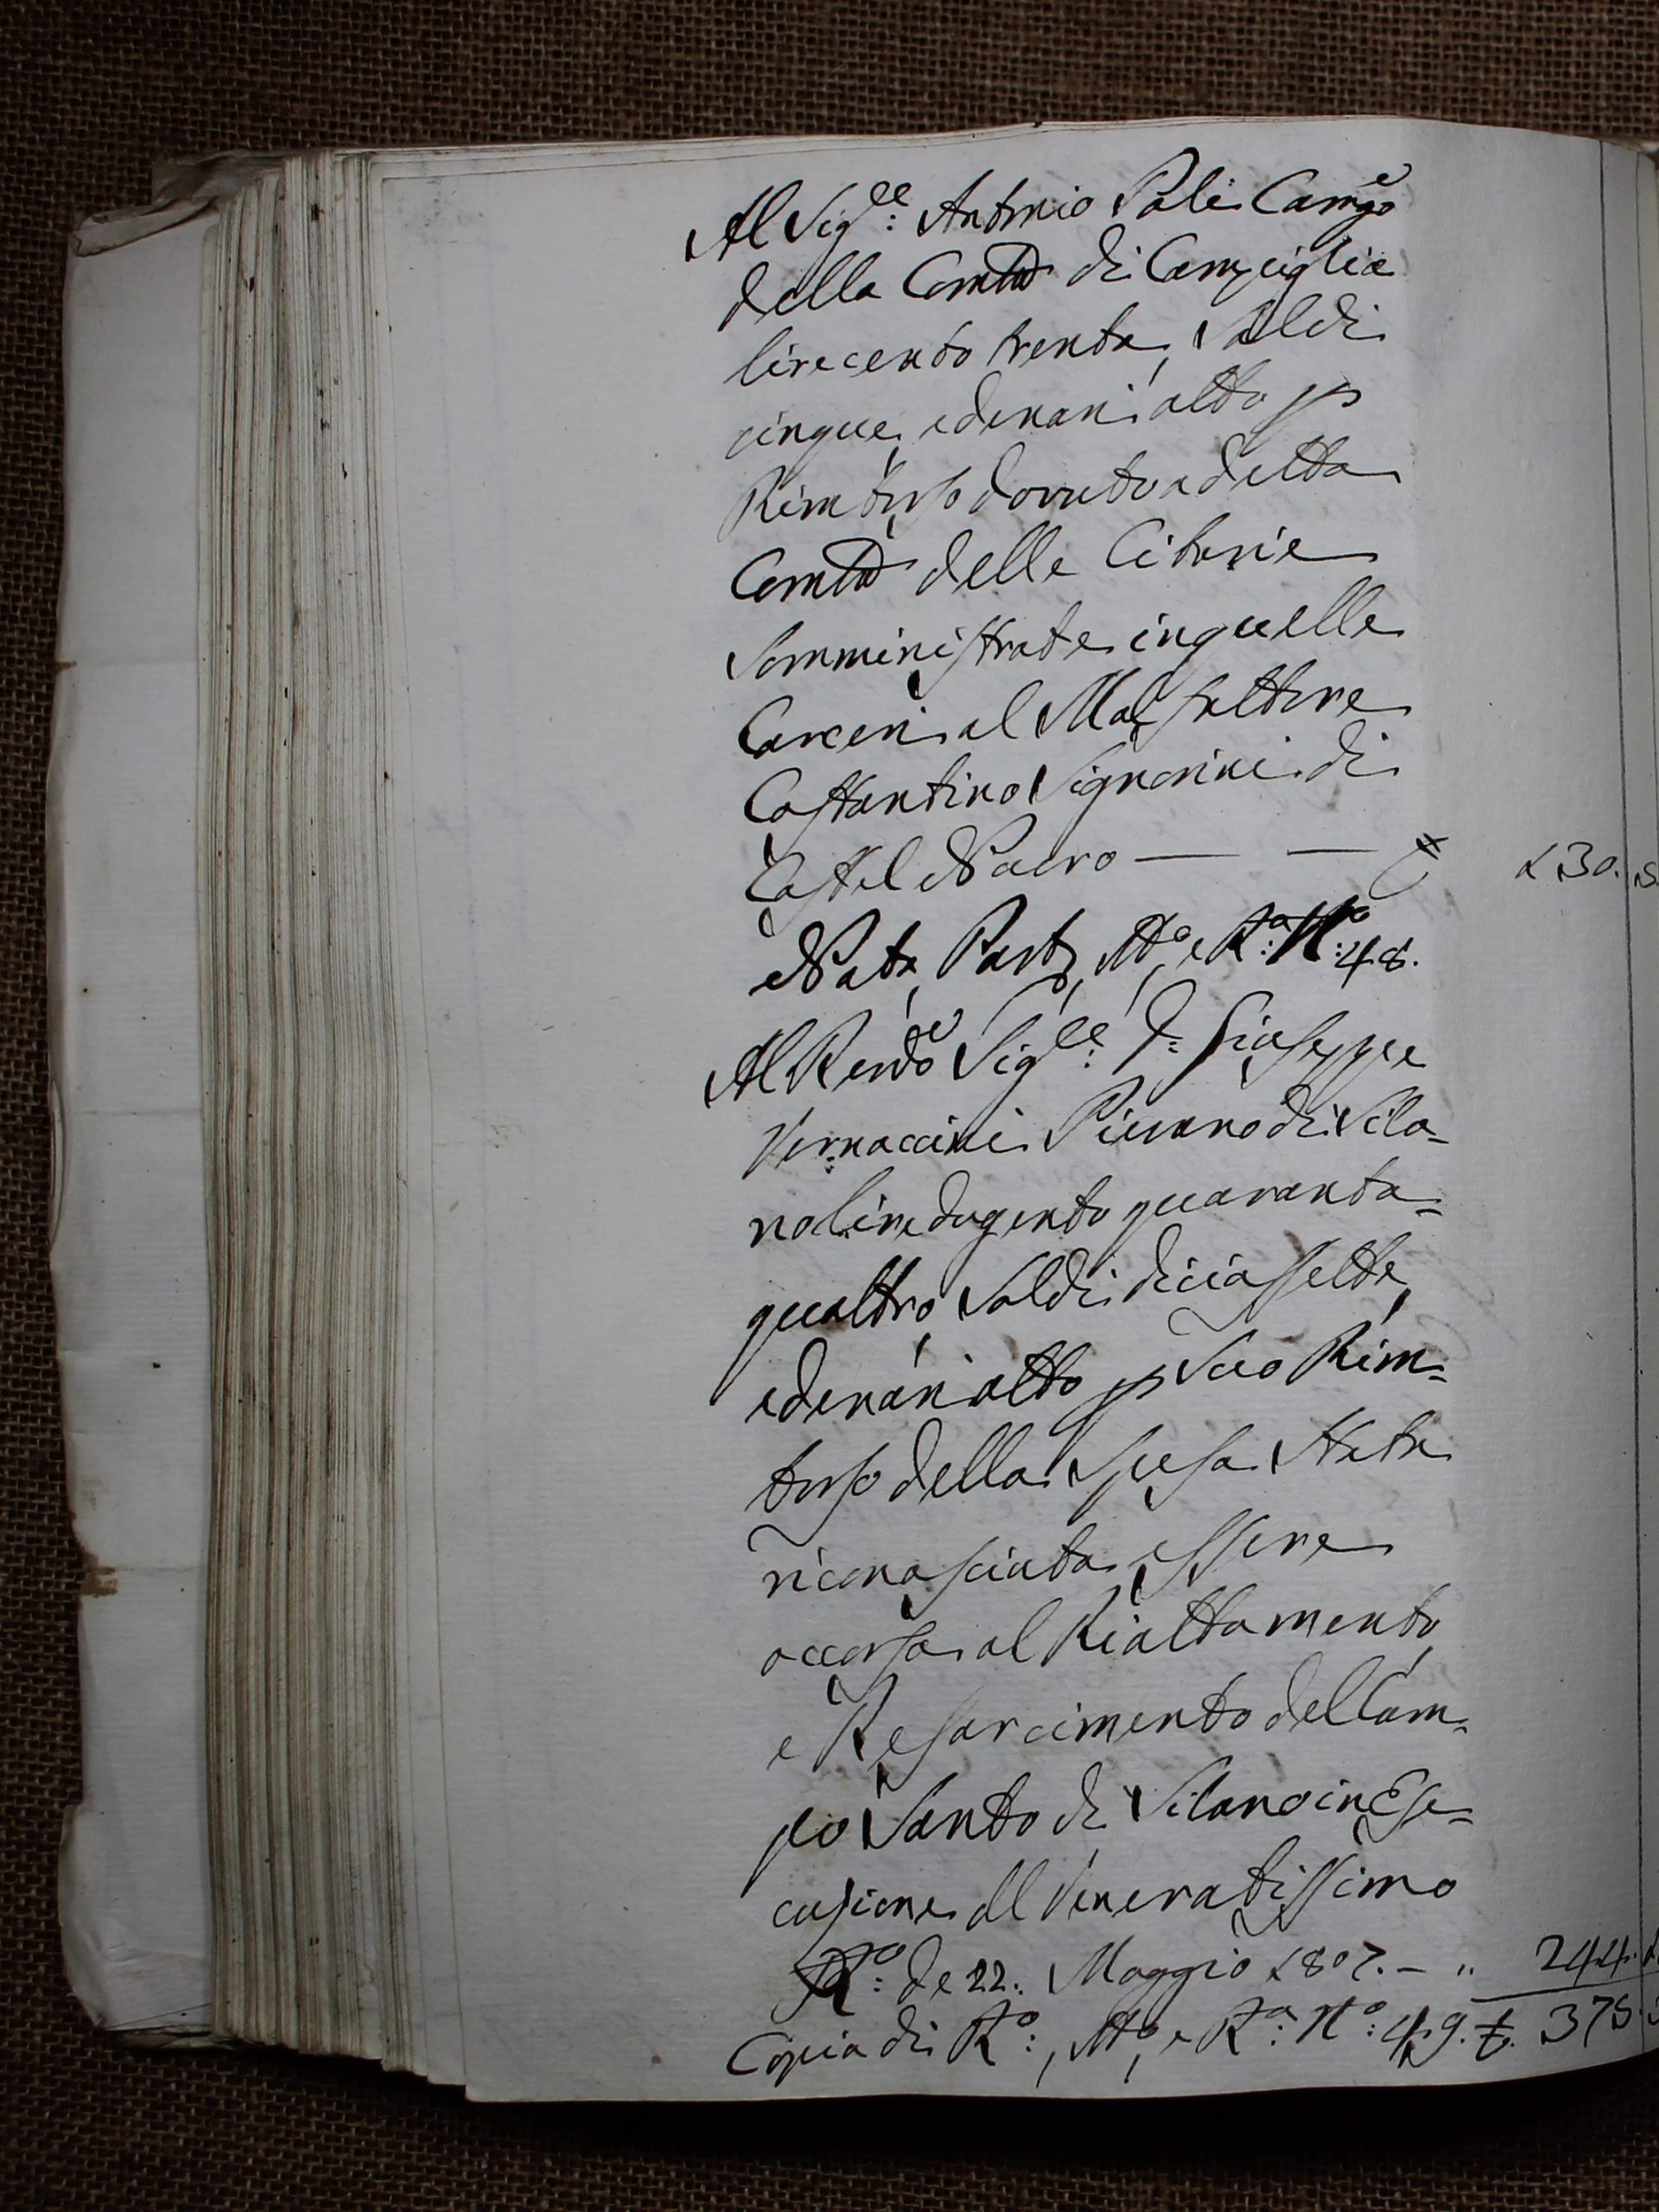 Al Sig:re Antonio Poli Camgo
della Comtà di Campiglia
lire cento trenta, Soldi
cinque, e denari otto p
Rimborso dovuto a detta
Comtà delle Cibarie
Somministrate in quelle
Carceri al Malfattore
Costantino Signorini di
Castel Nuovo — — £ 130. 5.
Nota, Part, Mo, e Ra: No: 48.
Al Rendo Sig:re D: Giuseppe
Vernaccini Pievano di Sila=
no lire dugento quaranta=
quattro Soldi diciassette,
e denari otto p Suo Rim=
borso della Spesa Stata
riconosciuta essere
occorsa al Riattamento,
e Resarcimento del Cam=
po Santo di Silano in Ese=
cuzione al Veneratissimo
Ro: de 22: Maggio 1807. — " 244.
Copia di Ro:, Mo, e Ra: No: 49. £. 375.